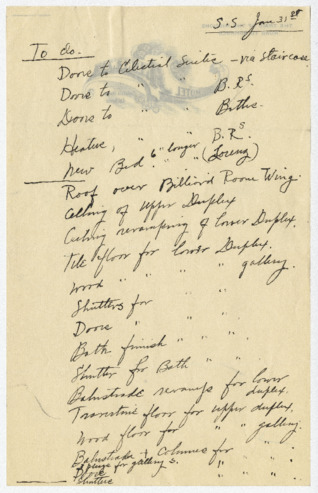 S.S. Jan 31st
To do.
Doors to Celestial Suite - via Staircase
Doors to " " B.Rs.
Doors to " " Baths.
Heaters, " " B.Rs
New Bed 6" longer " (Loring)
Roof over Billiard Room Wing.
Ceiling of Upper Duplex
Ceiling revamping of lower Duplex.
Tile floor for lower Duplex.
Wood " " " " gallery.
Shutters for " "
Doors " " "
Bath finish " " "
Shutter for Bath " " "
Balustrade revamps for lower duplex.
Travertine floor for upper duplex.
Wood floor for " " gallery.
Balustrade & Columns for " "
for gallery s.
Doors " " "
Shutters " " "